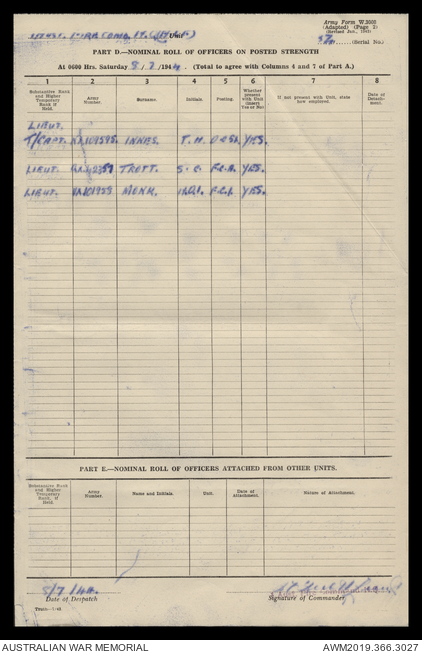 Army Form W.3008
(Adapted) (Page 2)
(Revised Jan., 1943)
(Serial No.)
Unit
PART D.—NOMINAL ROLL OF OFFICERS ON POSTED STRENGTH
At 0600 Hrs. Saturday 8/7/1944. (Total to agree with Columns 4 and 7 of Part A.)
1 2 3 4 5 6 7 8
Substantive Rank and Higher Temporary Rank if Held.
Army Number.
Surname.
Initials.
Posting.
Whether present with Unit (insert Yes or No)
If not present with Unit, state how employed.
Date of Detachment.
LIEUT.
T/CAPT. INNES. T. H. YES.
LIEUT. TROTT. S. C. YES.
LIEUT. YES.
PART E.—NOMINAL ROLL OF OFFICERS ATTACHED FROM OTHER UNITS.
Substantive Rank and Higher Temporary Rank, if Held.
Army Number.
Name and Initials.
Unit.
Date of Attachment.
Nature of Attachment.
8/7/44.
Date of Despatch
Signature of Commander
AUSTRALIAN WAR MEMORIAL AWM2019.366.3027